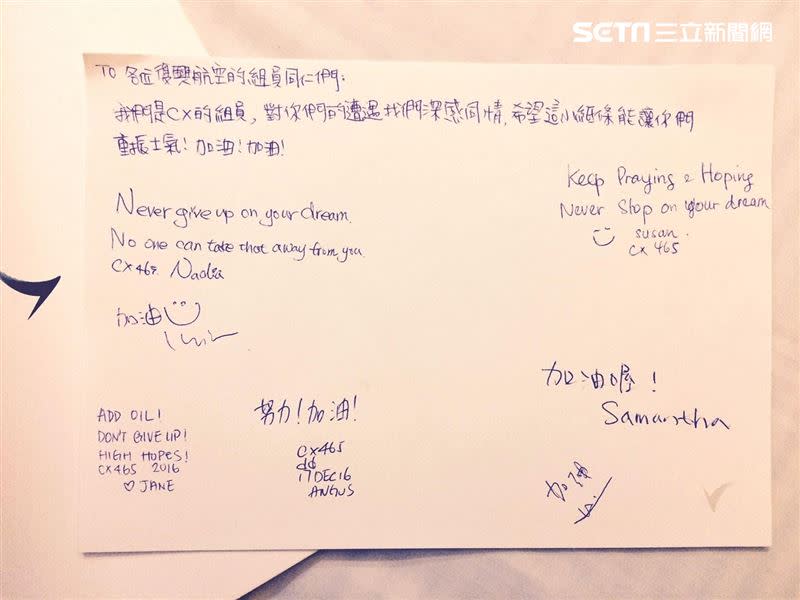 SETN三立新聞網
TO 各位復興航空的組員同仁們:
我們是CX的組員,對你們的遭遇我們深感同情,希望這小紙條能讓你們
重振士氣!加油!加油!
Keep Praying & Hoping
Never Stop on your dream
susan.
CX 465
Never give up on your dream.
No one can take that away from you.
CX 465 Nadia
加油
加油喔!
Samantha
ADD OIL!
DON'T GIVE UP!
HIGH HOPES!
CX465 2016
♡ JANE
努力!加油!
CX465
dd
17DEC16
ANGUS
加油